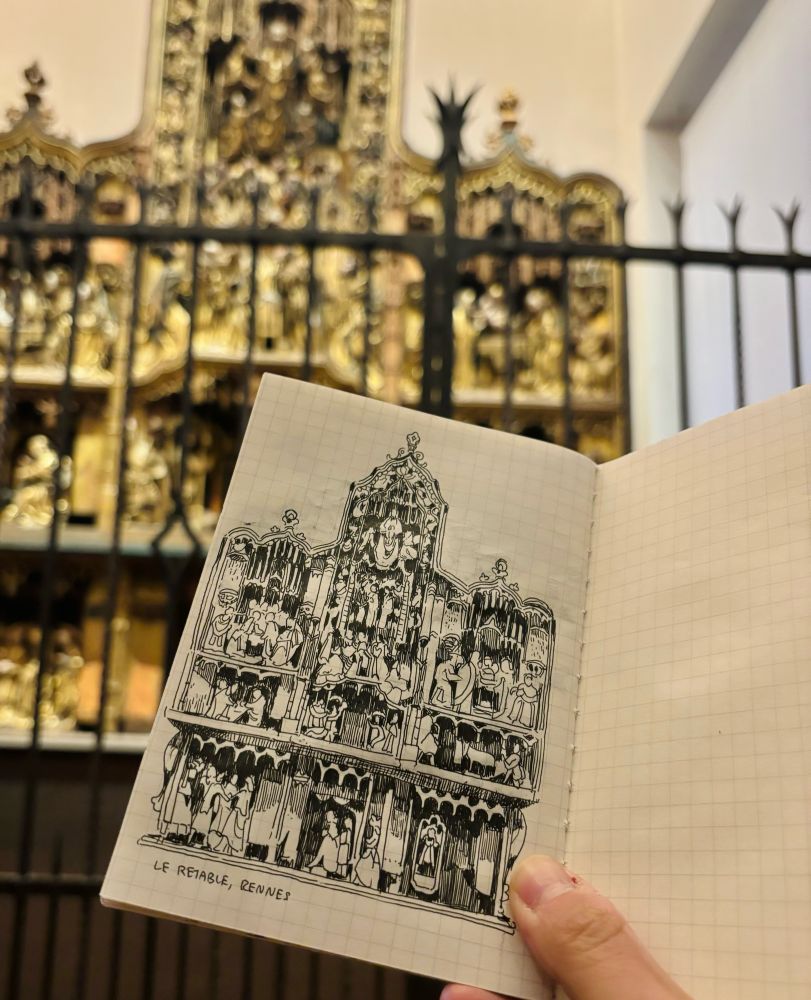 LE RETABLE, RENNES